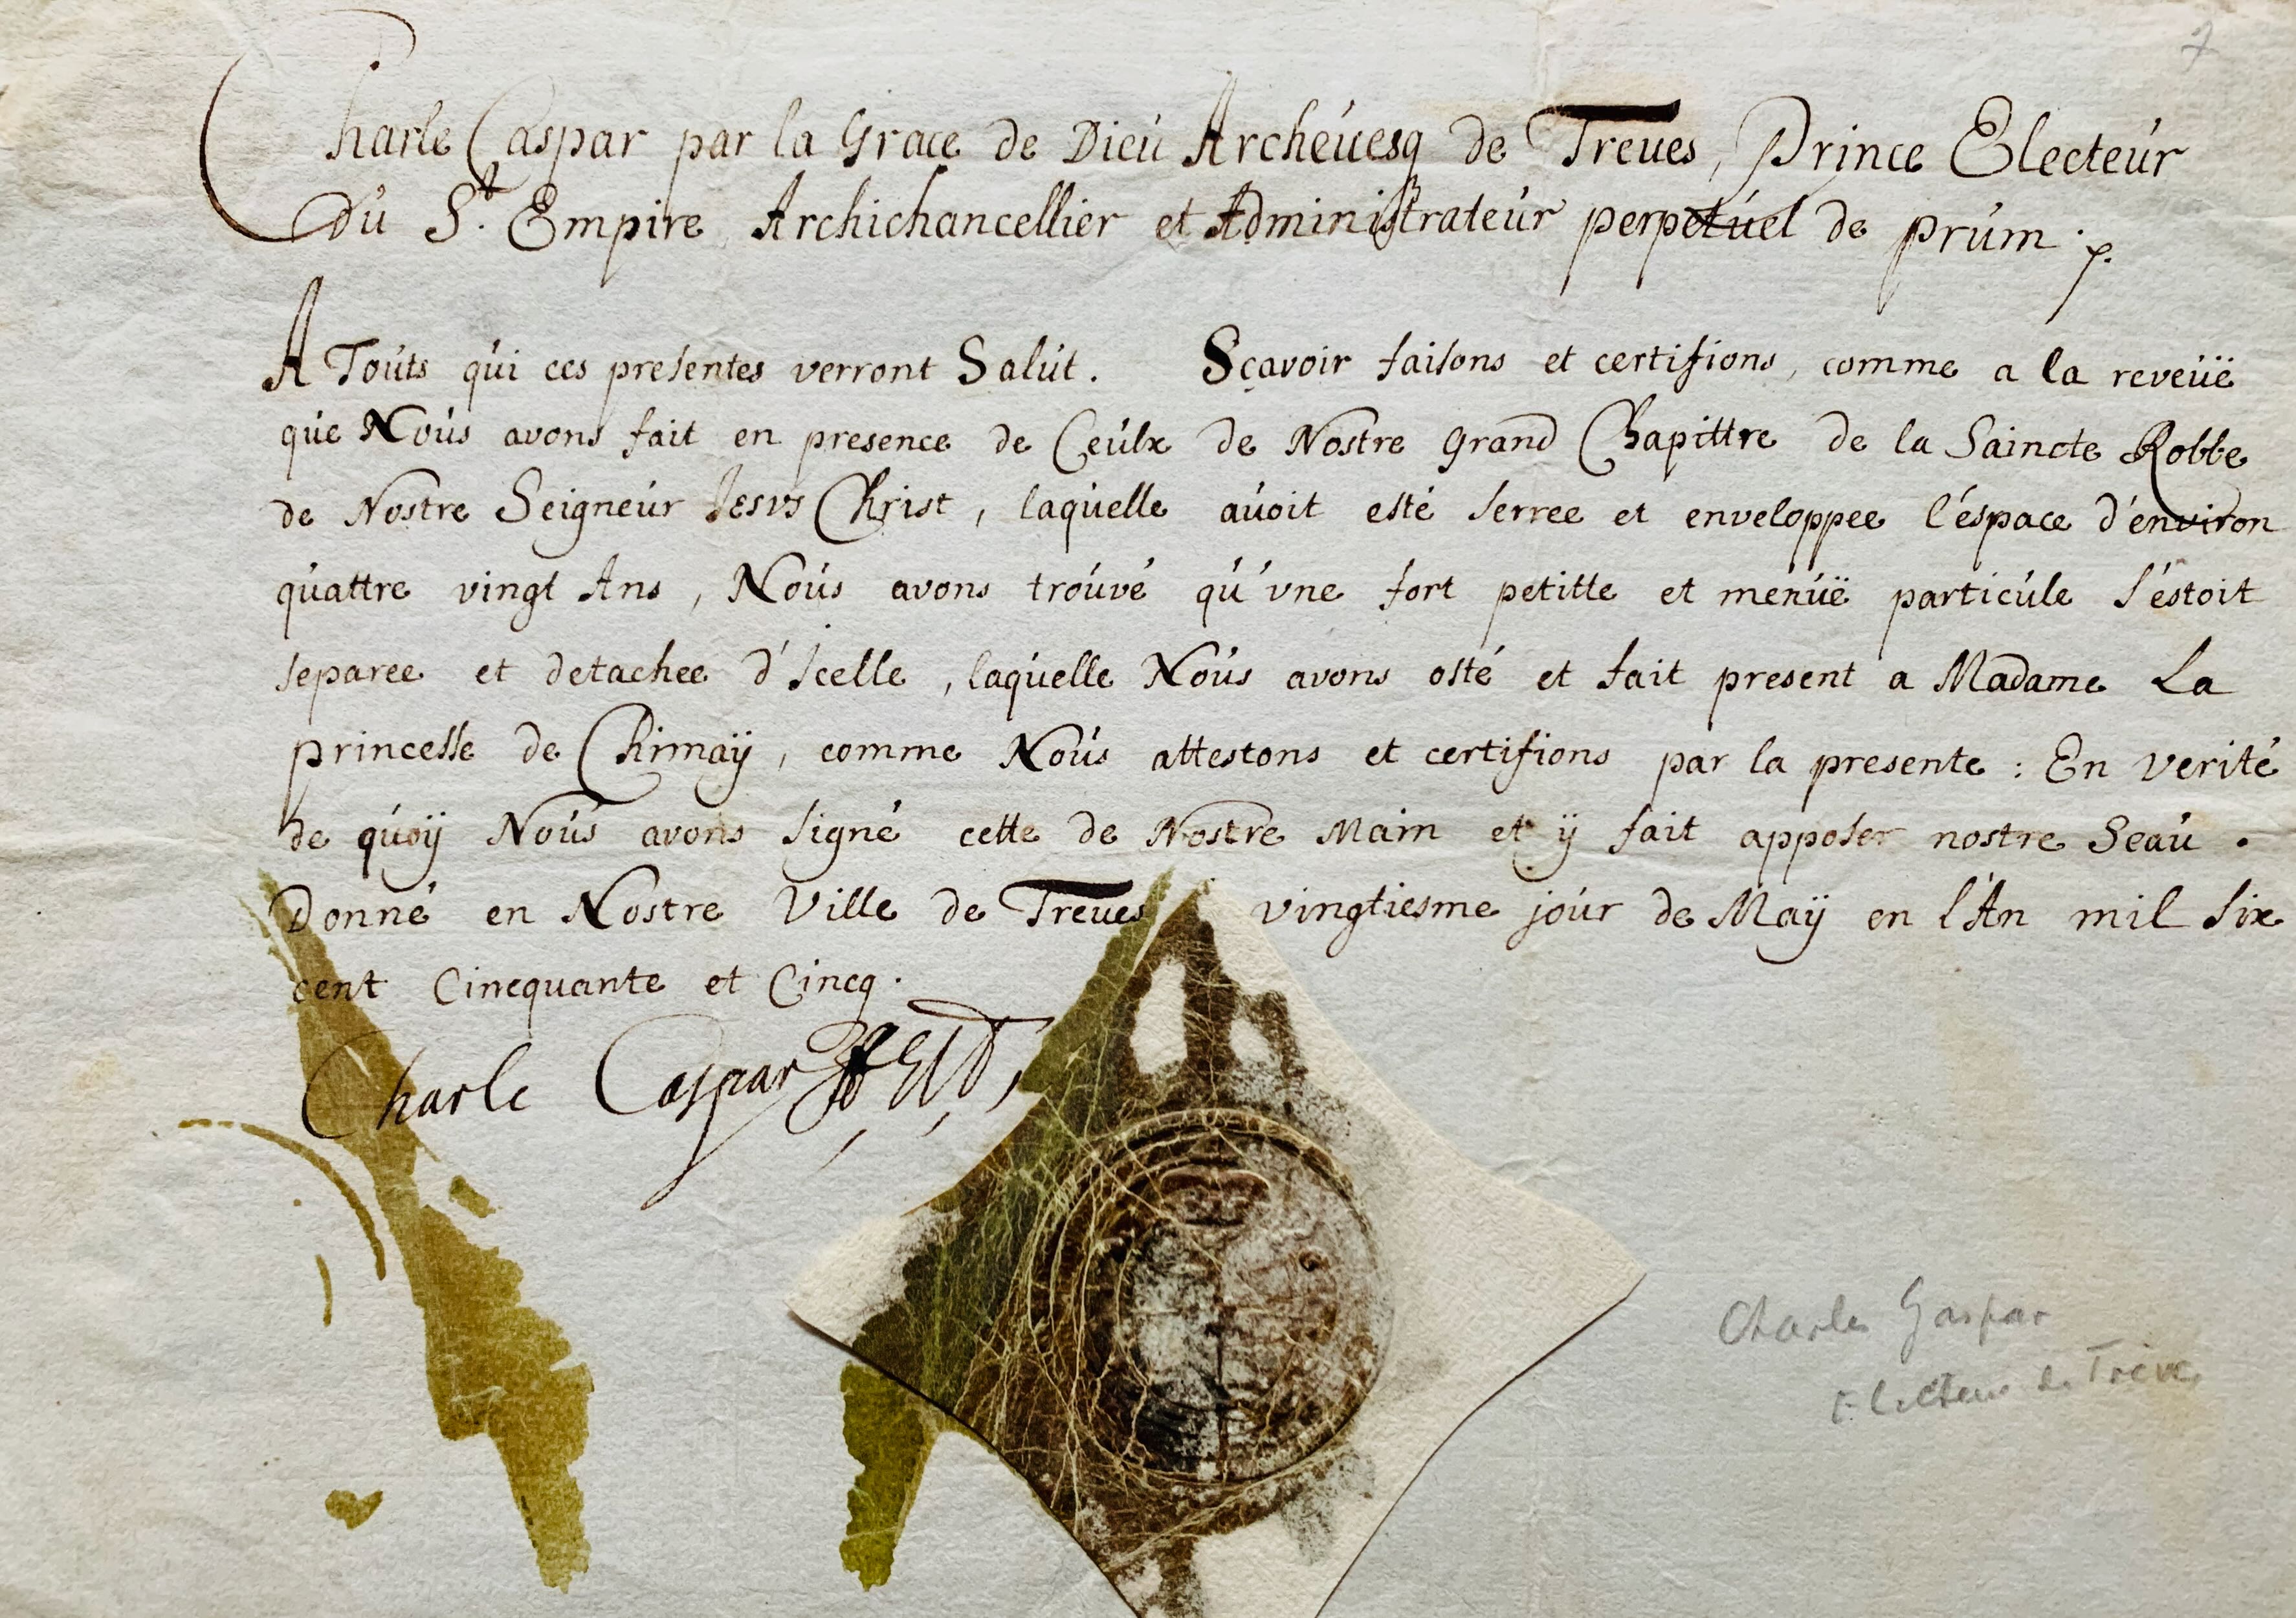 7
Charle Caspar par la Grace de Dieu Archeuesq de Treues, Prince Electeur
du St. Empire, Archichancellier et Administrateur perpetuel de prum.
A Touts qui ces presentes verront Salut. Sçavoir faisons et certifions, comme a la reveüe
que Nous avons fait en presence de Ceulx de Nostre grand Chapittre de la Saincte Robbe
de Nostre Seigneur Jesvs Christ, laquelle auoit esté serree et enveloppee l'éspace d'environ
quattre vingt Ans, Nous avons trouvé qu'vne fort petitte et menuë particule s'éstoit
separee et detachee d'Icelle, laquelle Nous avons osté et fait present a Madame La
princesse de Chimaÿ, comme Nous attestons et certifions par la presente: En verité
de quoÿ Nous avons signé cette de Nostre Main et ÿ fait apposer nostre Seau.
Donné en Nostre Ville de Treues vingtiesme jour de Maÿ en l'An mil six
cent Cincquante et Cincq.
Charle Caspar
Charles Gaspar
Electeur de Trèves